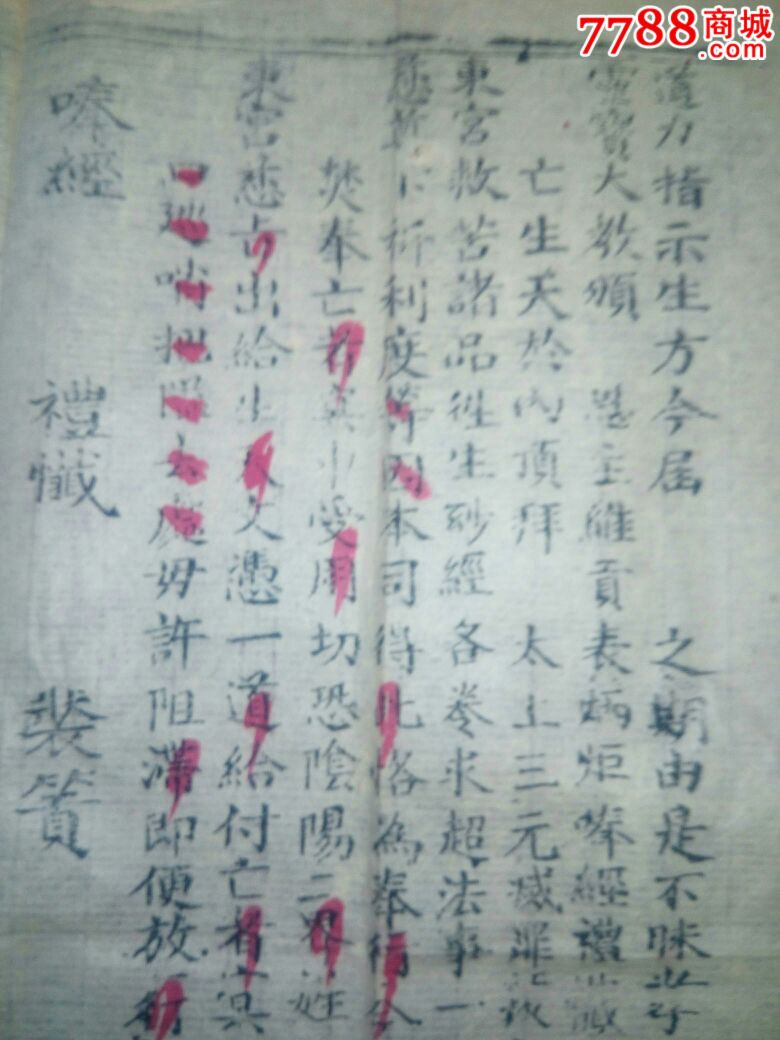 7788商城
.com
道力指示生方今届 之期由是不昧
靈寶大教頒 恩主維貢表炳炬唪經禮懺
亡生天於內頂拜 太上三元滅罪
東宮救苦諸品往生砂經各卷求超法事一
慈尊 祈利度等因本司得此恪為奉行
焚奉亡者冥中受用切恐陰陽二界
東宮慈 出給生天文憑一道給付亡者冥
把隘去處毋許阻滯即便放行
唪經 禮懺 裝簣